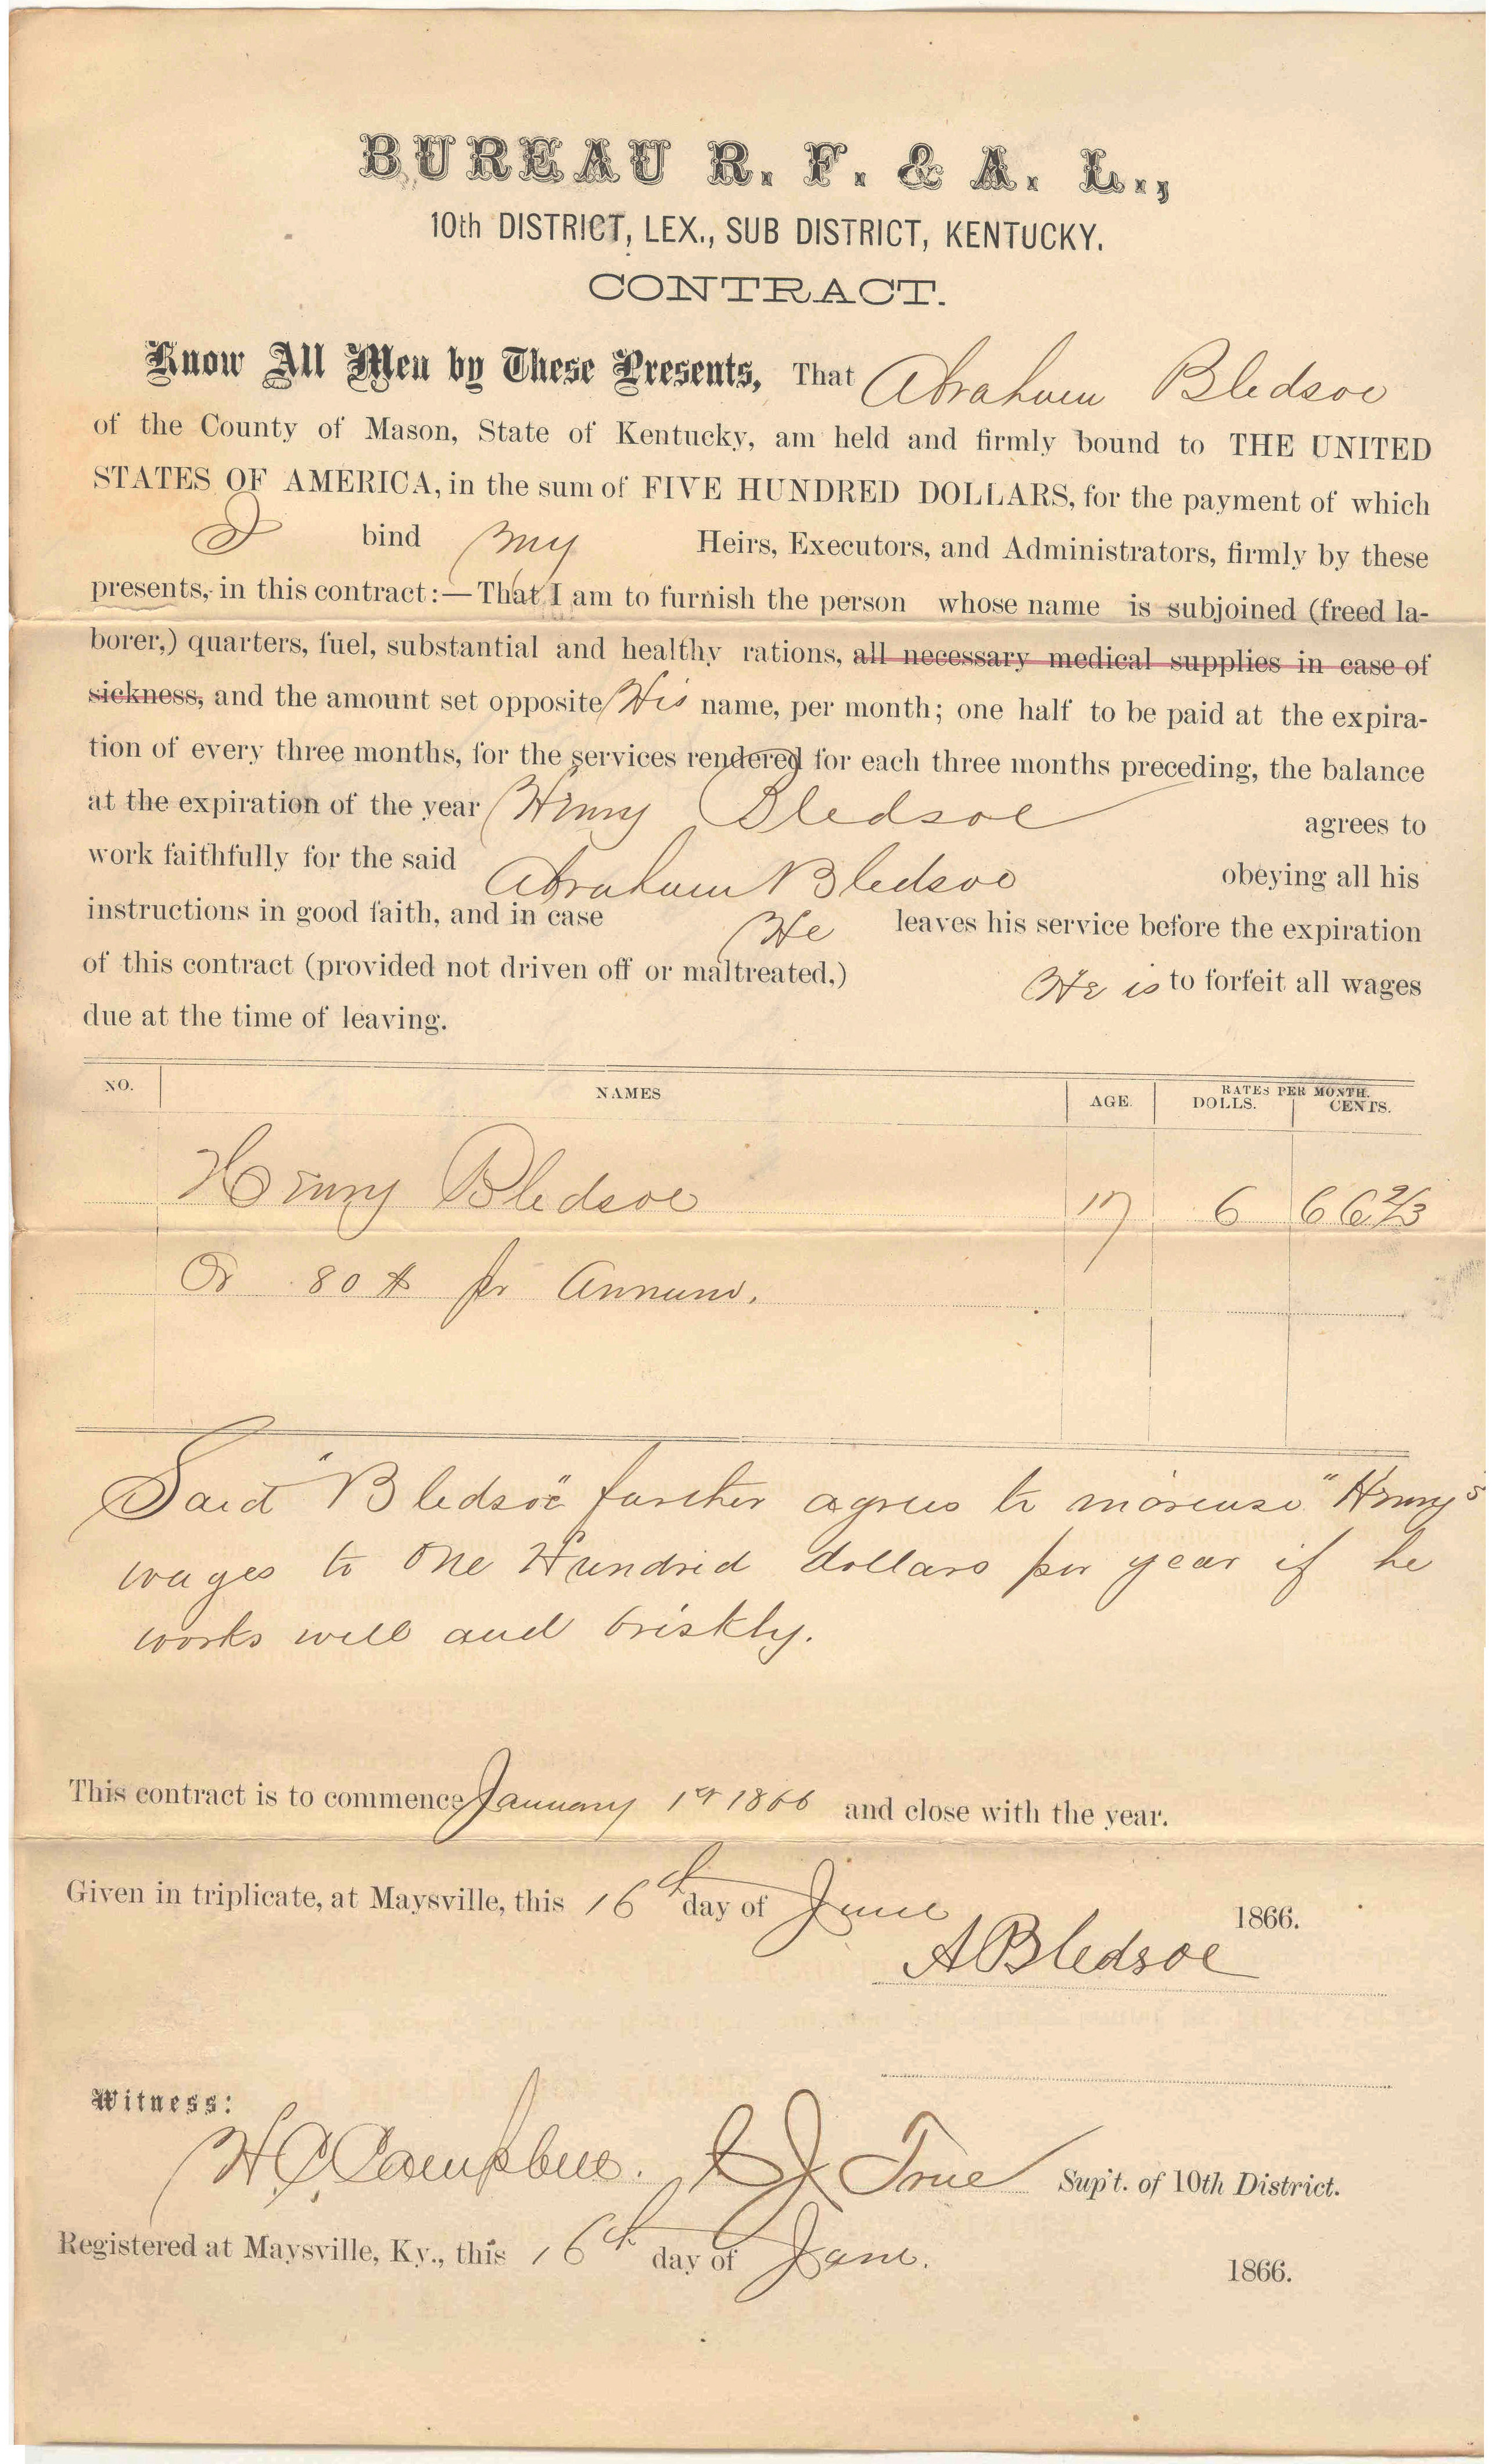 BUREAU R. F. & A. L.,
10th DISTRICT, LEX., SUB DISTRICT, KENTUCKY.
CONTRACT.
Know All Men by These Presents, That Abraham Bledsoe
of the County of Mason, State of Kentucky, am held and firmly bound to THE UNITED
STATES OF AMERICA, in the sum of FIVE HUNDRED DOLLARS, for the payment of which
I bind my Heirs, Executors, and Administrators, firmly by these
presents, in this contract:—That I am to furnish the person whose name is subjoined (freed la-
borer,) quarters, fuel, substantial and healthy rations, all necessary medical supplies in case of
sickness, and the amount set opposite His name, per month; one half to be paid at the expira-
tion of every three months, for the services rendered for each three months preceding, the balance
at the expiration of the year Henry Bledsoe agrees to
work faithfully for the said Abraham Bledsoe obeying all his
instructions in good faith, and in case He leaves his service before the expiration
of this contract (provided not driven off or maltreated,) He is to forfeit all wages
due at the time of leaving.
NO. NAMES AGE. RATES PER MONTH.
DOLLS. CENTS.
Henry Bledsoe 17 6 66 2/3
Or 80 $ pr Annum.
Said "Bledsoe" further agrees to increase "Henry's
wages to One Hundred dollars per year if he
works well and briskly.
This contract is to commence January 1st 1866 and close with the year.
Given in triplicate, at Maysville, this 16th day of June 1866.
A Bledsoe
Witness:
H C Campbell. True Sup't. of 10th District.
Registered at Maysville, Ky., this 16th day of June. 1866.